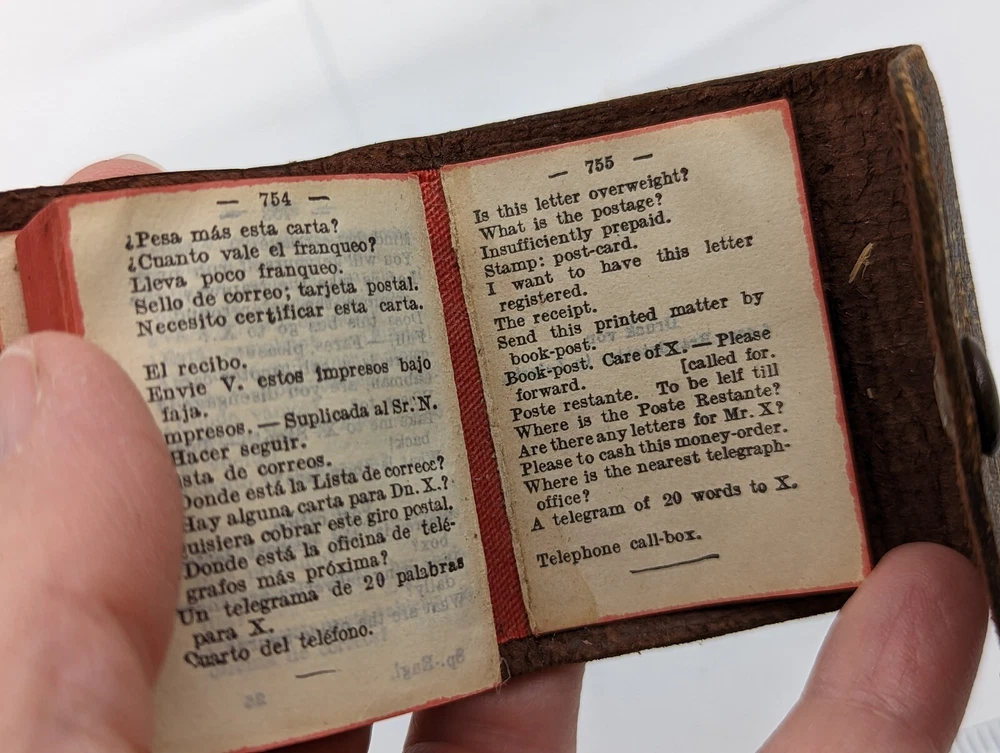 — 754 —
¿Pesa más esta carta?
¿Cuanto vale el franqueo?
Lleva poco franqueo.
Sello de correo; tarjeta postal.
Necesito certificar esta carta.
El recibo.
Envie V. estos impresos bajo
faja.
mpresos. — Suplicada al Sr. N.
Hacer seguir.
ista de correos.
Donde está la Lista de correcc?
Hay alguna carta para Dn. X.?
uisiera cobrar este giro postal.
Donde está la oficina de telé-
grafos más próxima?
Un telegrama de 20 palabras
para X.
Cuarto del teléfono.
— 755 —
Is this letter overweight?
What is the postage?
Insufficiently prepaid.
Stamp: post-card.
I want to have this letter
registered.
The receipt.
Send this printed matter by
book-post.
Book-post. Care of X. — Please
forward. [called for.
Poste restante. To be lelf till
Where is the Poste Restante?
Are there any letters for Mr. X?
Please to cash this money-order.
Where is the nearest telegraph-
office?
A telegram of 20 words to X.
Telephone call-box.